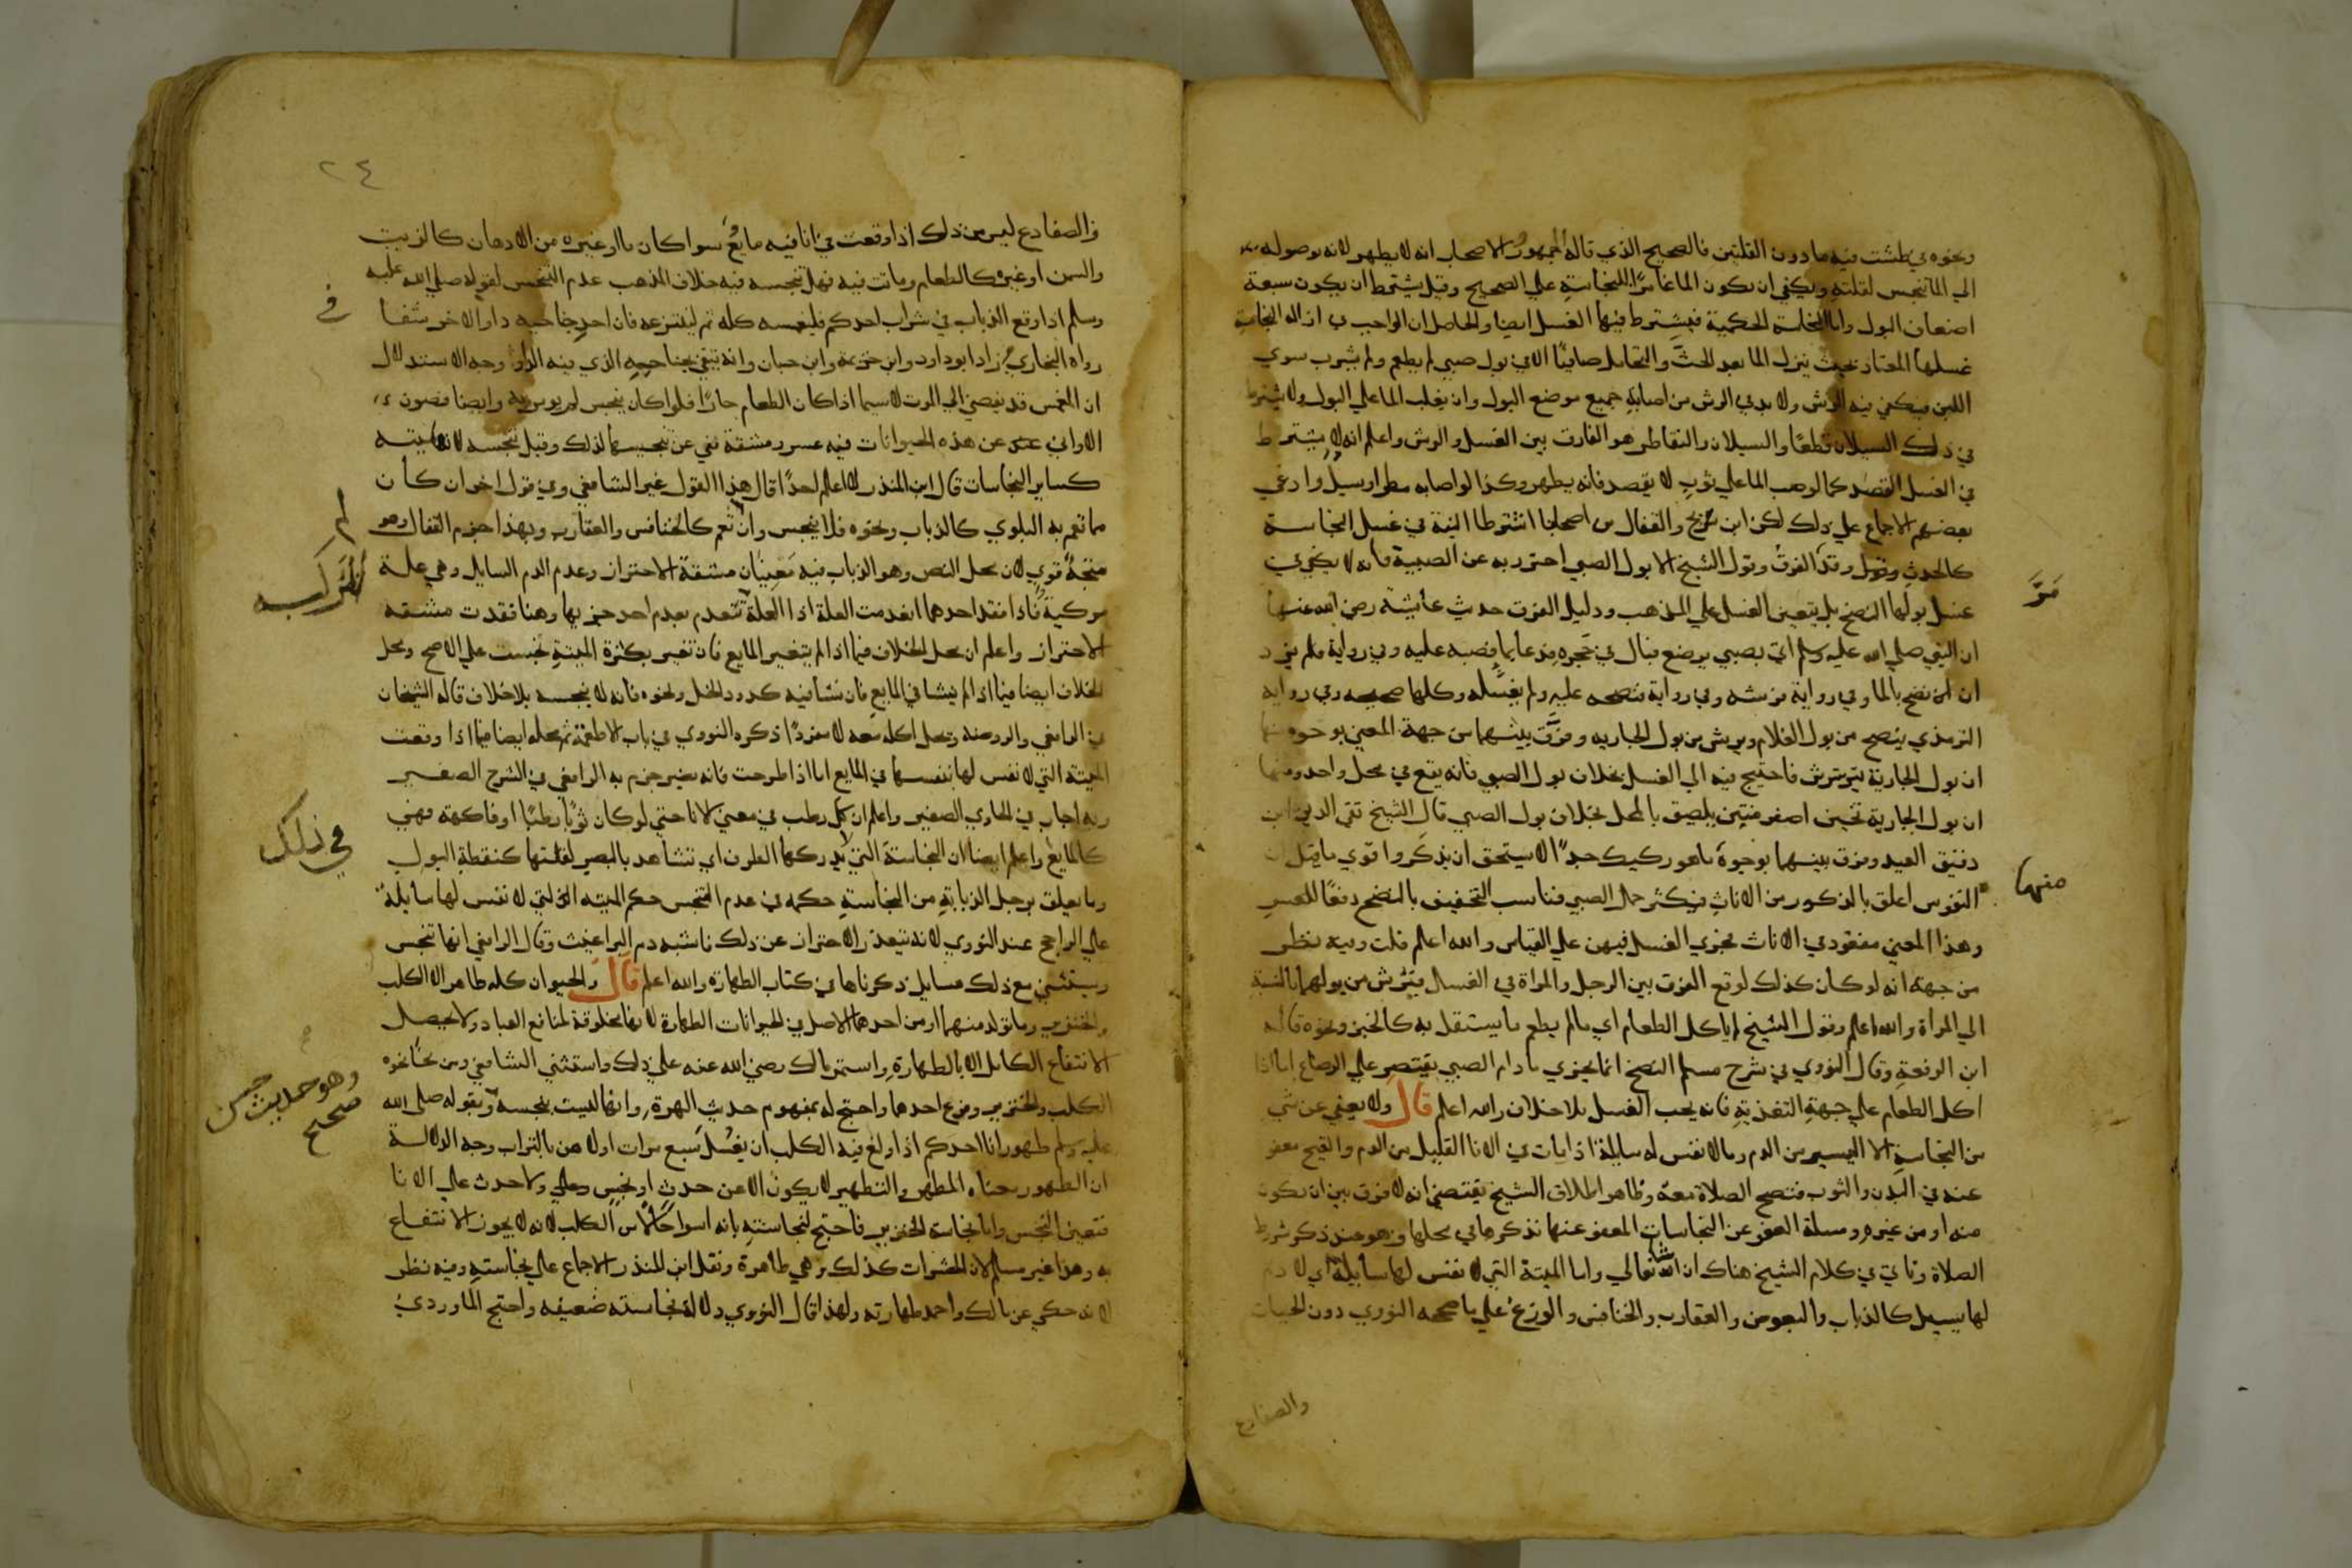 ونحوه في طشت فيه ما دون القلتين فالصحيح الذي قاله الجمهور الاصحاب انه لا يطهر لانه بوصوله
الي الما تنجس لقلته ويكفي ان يكون الما غامرًا للنجاسة علي الصحيح وقيل يشترط ان يكون سبعة
اضعاف البول واما النجاسة الحكمية فيشترط فيها الغسل ايضا والحاصل ان الواجب في ازالة النجاسة
غسلها المعتاد بحيث ينزل الما بعد الحت والتحامل صافيًا الا في بول صبي لم يطعم ولم يشرب سوي
اللبن فيكفي فيه الرش ولا بد في الرش من اصابة جميع موضع البول وان يغلب الما علي البول ولا يشترط
في ذلك السيلان قطعًا والسيلان والتقاطر هو الفارق بين الغسل والرش واعلم انه لا يشترط
في الغسل القصد كما لو صب الما علي ثوب لا يقصد فانه يطهر وكذا لو اصابه مطر او سيل وادعي
بعضهم الاجماع علي ذلك لكن ابن سريج والقفال من اصحابنا اشترطا النية في غسل النجاسة
كالحدث وقول الشيخ الا بول الصبي احترز به عن الصبية فانه لا يكفي في
مَرَّ
غسل بولها النضح بل يتعين الغسل علي المذهب ودليل الفرق حديث عائشة رضي الله عنها
ان النبي صلي الله عليه وسلم اتي بصبي يرضع فبال في حجره فدعا بما فصبه عليه وفي رواية فلم يزد
ان نضح بالما وفي رواية فرشه وفي رواية فنضحه عليه ولم يغسله وكلها صحيحه وفي رواية
الترمذي ينضح من بول الغلام ويرش من بول الجارية وفرَّق بينهما من جهة المعني بوجوه منها
ان بول الجارية يترشرش فاحتيج فيه الي الغسل بخلاف بول الصبي فانه يقع في محل واحد ومنها
ان بول الجارية ثخين اصفر منتن يلصق بالمحل بخلاف بول الصبي قال الشيخ تقي الدين ابن
دقيق العيد وفرق بينهما بوجوهٍ ما هو ركيك جدًا لا يستحق ان يذكر واقوي ما قيل ان
منها
النفوس اعلق بالذكور من الاناث فيكثر حمل الصبي فناسب التخفيف بالنضح دفعًا للعسر
وهذا المعني مفقود في الاناث فجري الغسل فيهن علي القياس والله اعلم قلت وفيه نظر
من جهة انه لو كان كذلك لوقع الفرق بين الرجل والمراة في الغسل فيرش من بولهما بالنسبة
الي المراة والله اعلم وقول الشيخ لم ياكل الطعام اي ما لم يطعم ما يستقل به كالخبز ونحوه قاله
ابن الرفعة وقال النووي في شرح مسلم النضح انما يجزي ما دام الصبي يقتصر علي الرضاع اما اذا
اكل الطعام علي جهة التغذية فانه يجب الغسل بلا خلاف والله اعلم قال ولا يعفي عن شي
من النجاسة الا اليسير من الدم وما لا نفس له سايلة اذا مات في الانا القليل من الدم والقيح معفو
عنه في البدن والثوب فتصح الصلاة معه وظاهر اطلاق الشيخ يقتضي انه لا فرق بين ان يكون
منه او من غيره ومسلة العفو عن النجاسات المعفو عنها نذكرها في محلها وهو عند ذكر شروط
الصلاة وتاتي في كلام الشيخ هناك ان شا الله تعالي واما الميتة التي لا نفس لها سايلة اي لا دم
لها يسيل كالذباب والبعوض والعقارب والخنافس والوزغ علي ما صححه النووي دون الحيات
والضفادع
٢٤
والضفادع ليس من ذلك اذا وقعت في انا فيه مايع سوا كان ما او غيره من الادهان كالزيت
والسمن او غيره كالطعام ومات فيه فهل تنجسه فيه خلاف المذهب عدم التنجس لقوله صلي الله عليه
وسلم اذا وقع الذباب في شراب احدكم فليغمسه كله ثم لينتزعه فان احد جناحيه دا والاخر شفا
في
رواه البخاري زاد ابو داود وابن خزيمة وابن حبان وانه يتقي بجناحه الذي فيه الدا وجه الاستدلال
ان الغمس قد يفضي الي الموت لا سيما اذا كان الطعام حارًا فلو كان ينجس لم يومر به وايضا فصون
الاواني عن هذه الحيوانات فيه عسر ومشقة فعفي عن تنجيسها لذلك وقيل تنجسه لانها ميتة
كساير النجاسات قال ابن المنذر لا اعلم احدًا قال هذا القول غير الشافعي وفي قول اخر ان كان
مما تعم به البلوي كالذباب ونحوه فلا ينجس وان لم تعم كالخنافس والعقارب وبهذا جزم القفال وهو
لم
متجهٌ قوي لان محل النص وهو الذباب فيه معنيان مشقة الاحتراز وعدم الدم السايل وهي علة
مركبة فاذا فقد احدهما انعدمت العلة اذا العلة تنعدم بعدم احد جزيها وهنا فقدت مشقة
المركبه
الاحتراز واعلم ان محل الخلاف فيما اذا لم يتغير المايع فان تغير بكثرة الميتة نجست علي الاصح ومحل
الخلاف ايضا فيما اذا لم ينشا في المايع فان نشا فيه كدود الخل ونحوه فانه لا ينجسه بلا خلاف قاله الشيخان
في الرافعي والروضة ويحل اكله معه لا منفردًا ذكره النووي في باب الاطعمة ثم محله ايضا فيما اذا وقعت
الميتة التي لا نفس لها بنفسها في المايع اما اذا طرحت فانه يضر جزم به الرافعي في الشرح الصغير
وبه اجاب في الحاوي الصغير واعلم ان كل رطب في معني الانا حتي لو كان ثوبًا رطبًا او فاكهة فهي
كالمايع واعلم ايضا ان النجاسة التي لا يدركها الطرف اي تشاهد بالبصر لقلتها كنقطة البول
في ذلك
وما يعلق برجل الذبابة من النجاسة حكمه في عدم التنجس حكم الميتة التي لا نفس لها سايلة
علي الراجح عند النووي لانه يتعذر الاحتراز عن ذلك فاشبه دم البراغيث وقال الرافعي انها تنجس
ويستثني مع ذلك مسايل ذكرناها في كتاب الطهارة والله اعلم قال والحيوان كله طاهر الا الكلب
والخنزير وما تولد منهما او من احدهما الاصل في الحيوانات الطهارة لانها مخلوقة لمنافع العباد ولا يحصل
الانتفاع الكامل الا بالطهارة واستمر مالك رضي الله عنه علي ذلك واستثني الشافعي ومن نحا نحوه
الكلب والخنزير وفرع احدهما واحتج له بمفهوم حديث الهرة وانها ليست بنجسة وبقوله صلي الله
وهو حديث حسن
صحيح
عليه وسلم طهور انا احدكم اذا ولغ فيه الكلب ان يغسل سبع مرات اولاهن بالتراب وجه الدلالة
ان الطهور معناه المطهر والتطهير لا يكون الا عن حدث او نجس ولا حدث علي الانا
فتعين النجس واما نجاسة الخنزير فاحتج لنجاسته بانه اسوا حالًا من الكلب لانه لا يجوز الانتفاع
به وهذا غير مسلم لان الحشرات كذلك وهي طاهرة ونقل ابن المنذر الاجماع علي نجاسته وفيه نظر
لانه حكي عن مالك واحمد طهارته ولهذا قال النووي دلالة نجاسته ضعيفه واحتج الماوردي